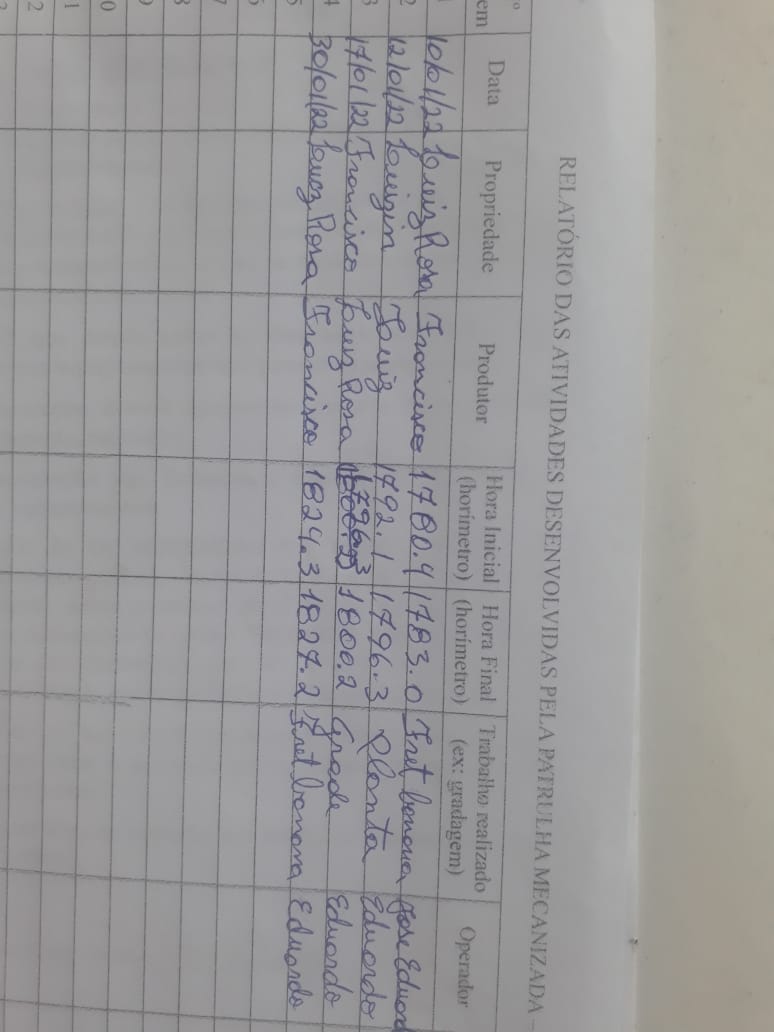 RELATÓRIO DAS ATIVIDADES DESENVOLVIDAS PELA PATRULHA MECANIZADA
em Data Propriedade Produtor Hora Inicial (horímetro) Hora Final (horímetro) Trabalho realizado (ex: gradagem) Operador
1 10/01/22 Luiz Rosa Francisco 1780.4 1783.0 Fret banana Jose Eduard
2 12/01/22 Luizin Luiz 1792.1 1796.3 Planta Eduardo
3 17/01/22 Francisco Luiz Rosa 1796.3 1800.2 Grade Eduardo
4 30/01/22 Luiz Rosa Francisco 1824.3 1827.2 Fret banana Eduardo
5
6
7
8
9
0
1
2